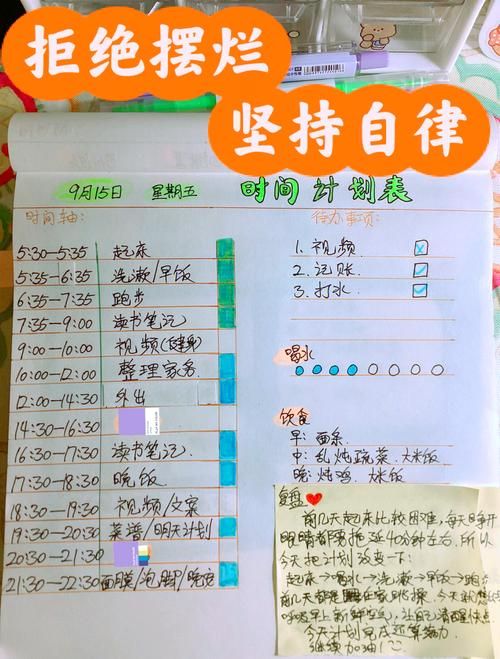 拒绝摆烂
坚持自律
9月15日 星期五 时间计划表
时间轴:
5:30-5:35 起床
5:35-6:35 洗漱/早饭
6:35-7:35 跑步
7:35-9:00 读书笔记
9:00-10:00 视频(健身)
10:00-12:00 整理家务
12:00-14:30 外出
14:30-16:30
16:30-17:30 读书笔记
17:30-18:30 晚饭
18:30-19:30 视频/文案
19:30-20:30 菜谱/明天计划
20:30-21:30
21:30-22:30 面膜/泡脚/晚安
待办事项:
1. 视频.
2. 记账.
3. 打水.
喝水
饮食
早: 面条.
中: 乱炖蔬菜. 大米饭
晚: 炖鸡. 米饭
复盘
前几天起床比较困难,每天睁开
眼睛都要拖延40分钟左右,所以
今天把计划改变一下:
起床→喝水→洗漱→早饭→跑步
前几天都是
早上新鲜空气,让自己清醒
今天计划完成还算给力.
继续加油!